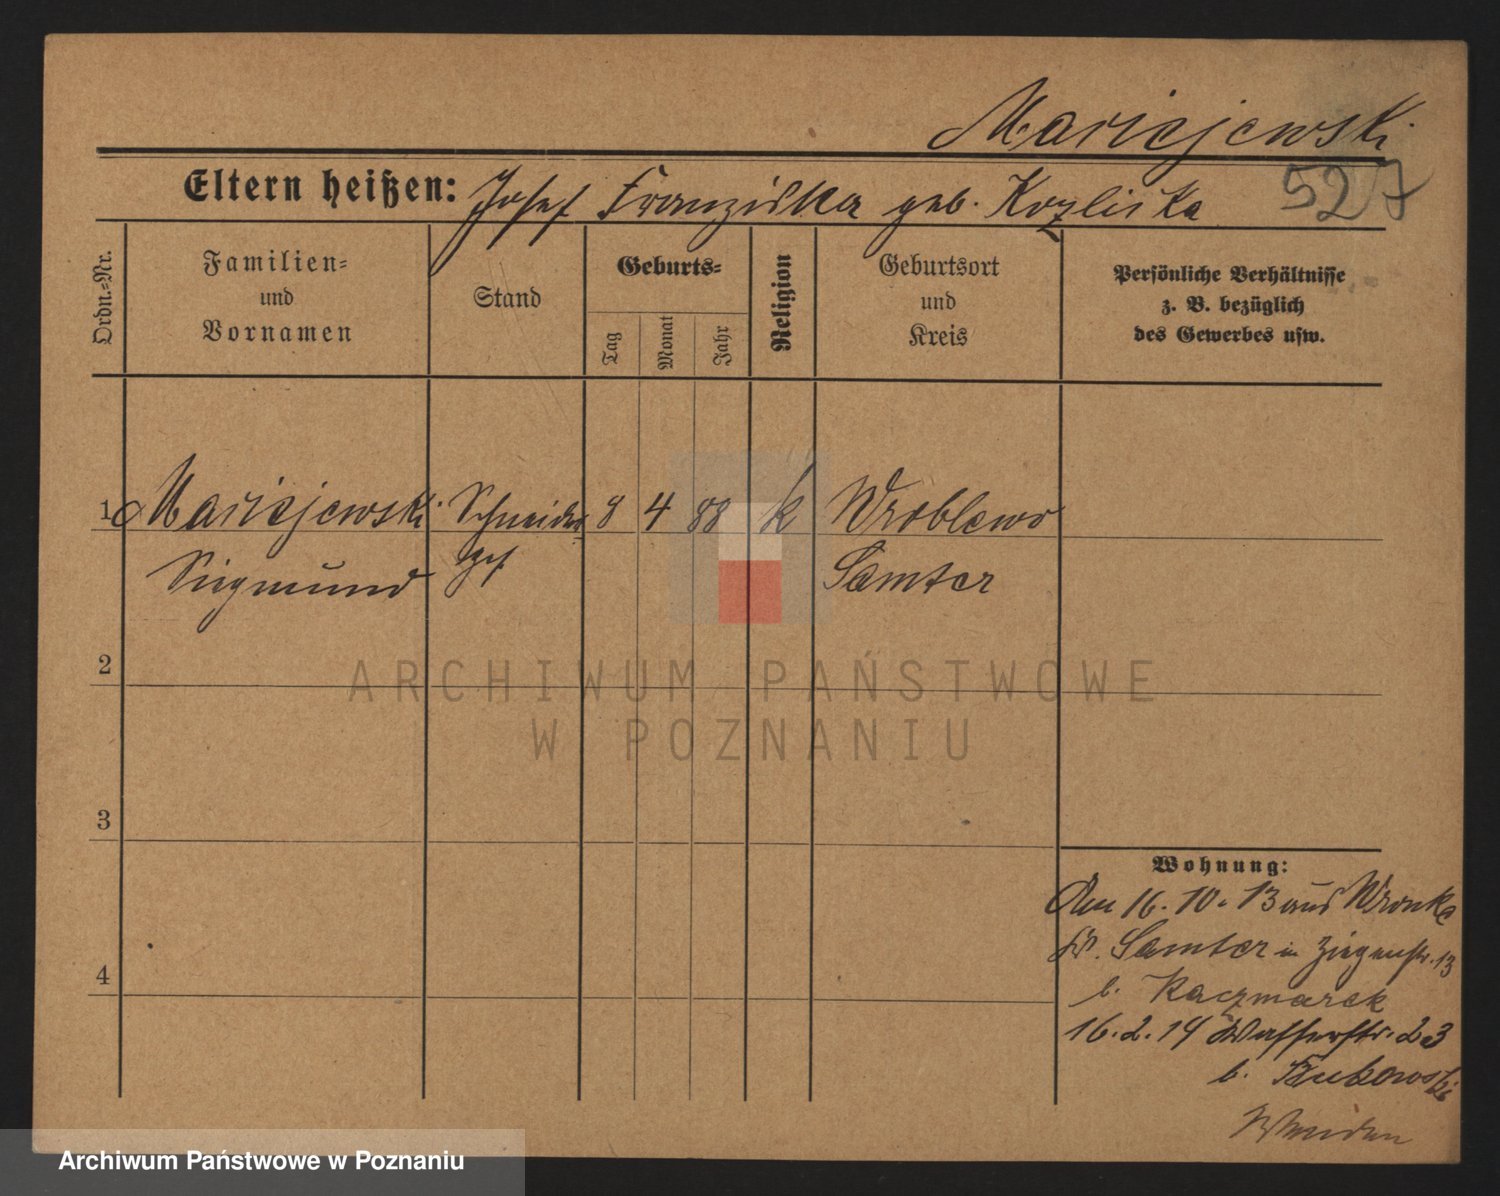 Maricjewski
527
Eltern heißen: Josef Franziska geb. Kozlicka
Ordn.-Nr.
Familien-
und
Vornamen
Stand
Geburts-
Tag
Monat
Jahr
Religion
Geburtsort
und
Kreis
Persönliche Verhältnisse
z. B. bezüglich
des Gewerbes usw.
1 Maricjewski Schneider 8 4 88 k Wroblewo
Siegmund ges Samter
2
ARCHIWUM PAŃSTWOWE
W POZNANIU
3
4
Wohnung:
Am 16.10.13 aus Wronke
Kr. Samter in Ziegenstr. 13
b. Kaczmarek
16.2.14 Wasserstr. 23
b. Bukowski
Archiwum Państwowe w Poznaniu